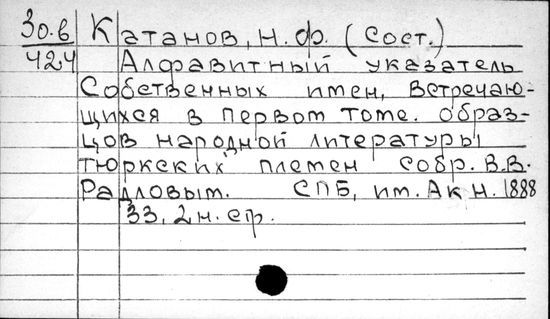 30.в Катанов, Н.Ф. (сост.)
424 Алфавитный указатель
Собственных имен, встречаю-
щихся в первом томе. Образ-
цов народной литературы
тюркских племен собр. В.В.
Радловым. СПБ, им. Ак Н. 1888
33, 2 н. ср.